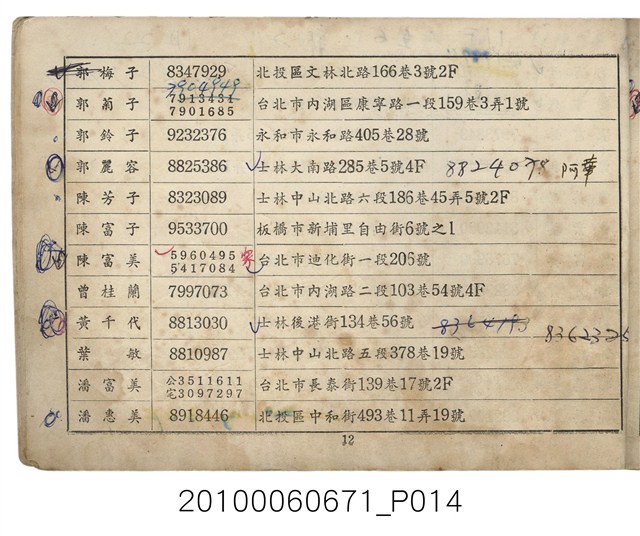 郭梅子 8347929 北投區文林北路166巷3號2F
郭菊子 7913431 7901685 台北市內湖區康寧路一段159巷3弄1號
郭鈴子 9232376 永和市永和路405巷28號
郭麗容 8825386 士林大南路285巷5號4F 8824078 阿華
陳芳子 8323089 士林中山北路六段186巷45弄5號2F
陳富子 9533700 板橋市新埔里自由街6號之1
陳富美 5960495 5417084 家 台北市迪化街一段206號
曾桂蘭 7997073 台北市內湖路二段103巷54號4F
黃千代 8813030 士林後港街134巷56號
葉敏 8810987 士林中山北路五段378巷19號
潘富美 公3511611 宅3097297 台北市長泰街139巷17號2F
潘惠美 8918446 北投區中和街493巷11弄19號
12
20100060671_P014